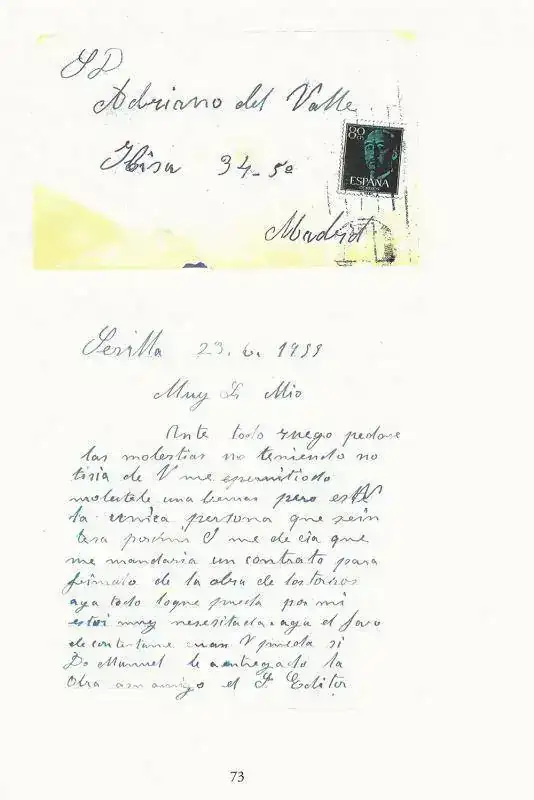 S D
Adriano del Valle
Ibisa 34-5º
80 CTS
ESPAÑA
Madrid
Sevilla 23. 6. 1955
Muy Sr Mio
Ante todo ruego pedone
las molestias no teniendo no
tisia de V me epermitiodo
molestale una bemas pero est V
la unica persona que sein
tesa por mi V me de cia que
me mandaria un contrato para
firmalo de la obra de los toros
aga todo loque pueda por mi
estoi muy nesesitada aga el favo
de contertame cuan V pueda si
Dn Manuel le a entregado la
Obra asu amigo el Sr Editor
73